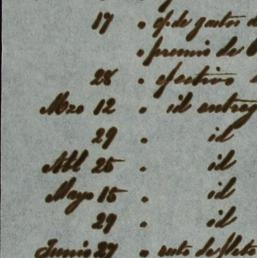 17 " id de gastos d
" premio de
28 " efectivo
Mzo 12 " id entreg
29 " id
Abl 25 " id
Mayo 15 " id
29 " id
Junio 27 " auto de flete